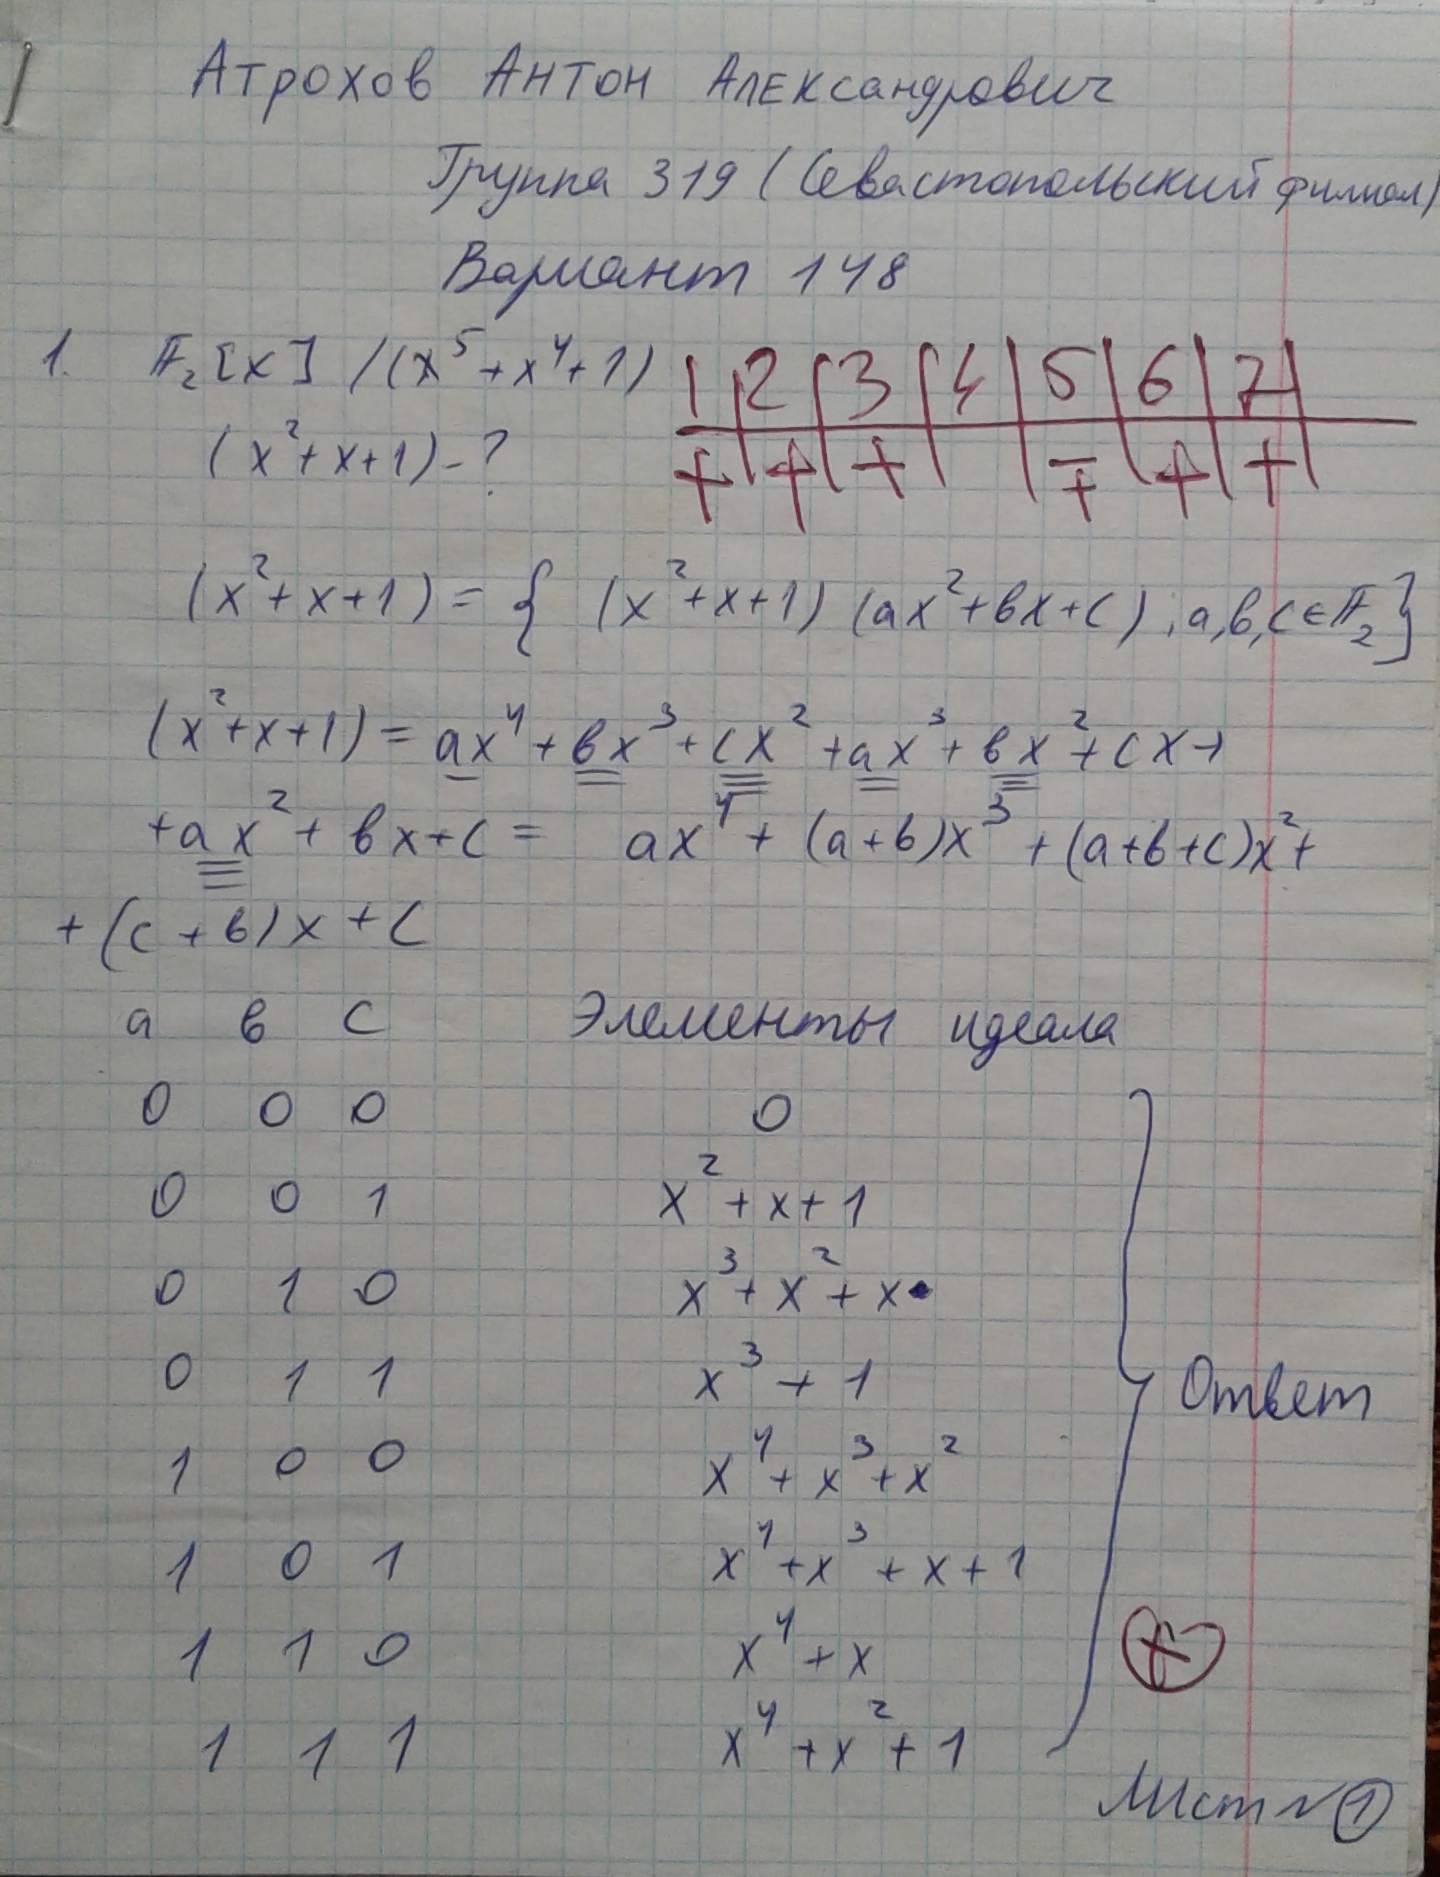 Атрохов Антон Александрович
Группа 319 (Севастопольский филиал)
Вариант 148
1. F₂[x] /(x⁵+x⁴+1)
(x²+x+1) - ?
1 2 3 4 5 6 7
+ + + ∓ + +
(x²+x+1) = { (x²+x+1) (ax²+bx+c), a,b,c ∈ F₂}
(x²+x+1) = ax⁴ + bx³ + cx² + ax³ + bx² + cx +
+ ax² + bx + c = ax⁴ + (a+b)x³ + (a+b+c)x² +
+ (c+b)x + c
a b c Элементы идеала
0 0 0 0
0 0 1 x²+x+1
0 1 0 x³+x²+x
0 1 1 x³+1
1 0 0 x⁴+x³+x²
1 0 1 x⁴+x³+x+1
1 1 0 x⁴+x
1 1 1 x⁴+x²+1
Ответ
+
Лист ~ 1